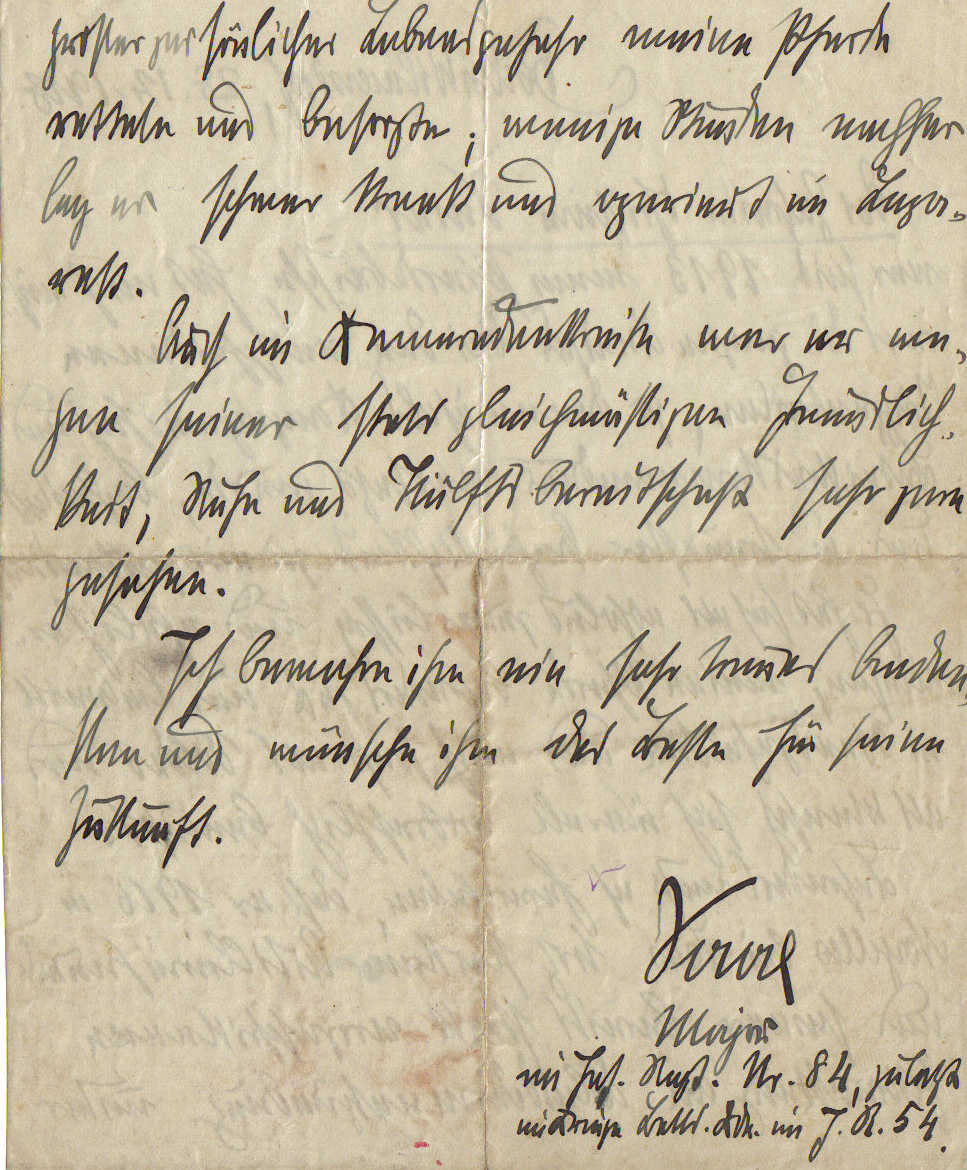 grösster persönlicher Lebensgefahr meine Pferde
rettete und besorgte; wenige Stunden nachher
lag er schwer krank und operiert im Laza-
rett.
Auch im Kameradenkreise war er we-
gen seiner stets gleichmäßigen Freundlich-
keit, Ruhe und Hülfsbereitschaft sehr gern
gesehen.
Ich bewahre ihm ein sehr treues Geden-
ken und wünsche ihm das Beste für seine
Zukunft.
Major
im Inf. Regt. Nr. 84, zuletzt
im Kriege Batls. Kdr. im J. R. 54.